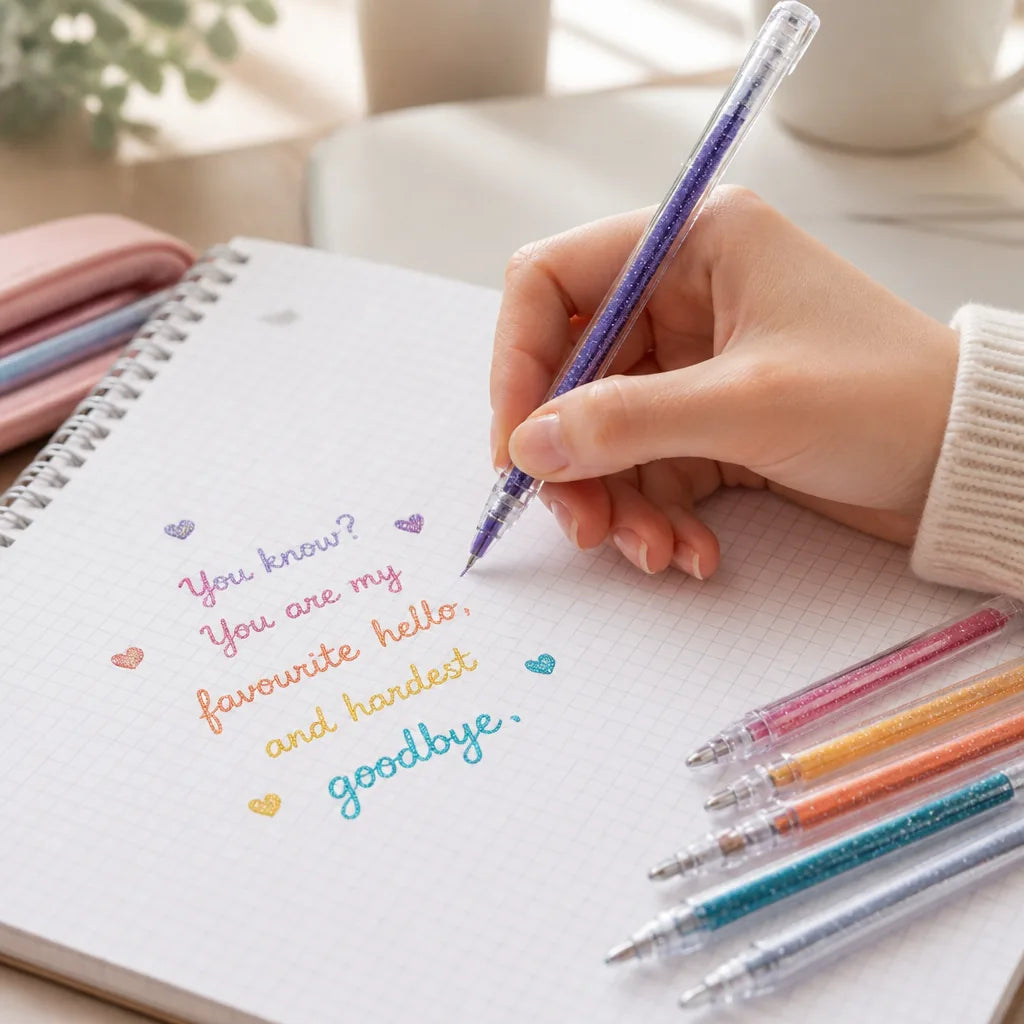 You know?
You are my
favourite hello,
and hardest
goodbye.